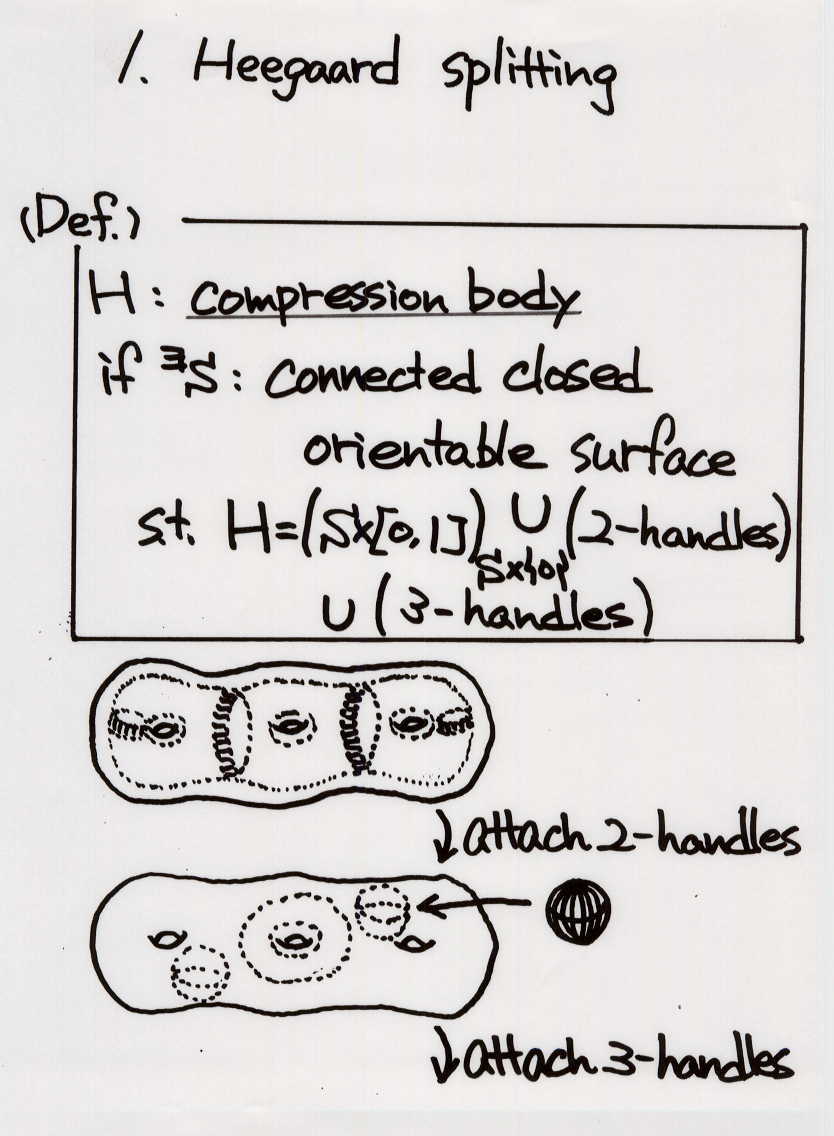 1. Heegaard splitting
(Def.)
H: compression body
if ∃S: connected closed
orientable surface
s.t. H=(S×[0,1]) ∪ (2-handles)
S×{0}
∪ (3-handles)
↓attach 2-handles
↓attach 3-handles